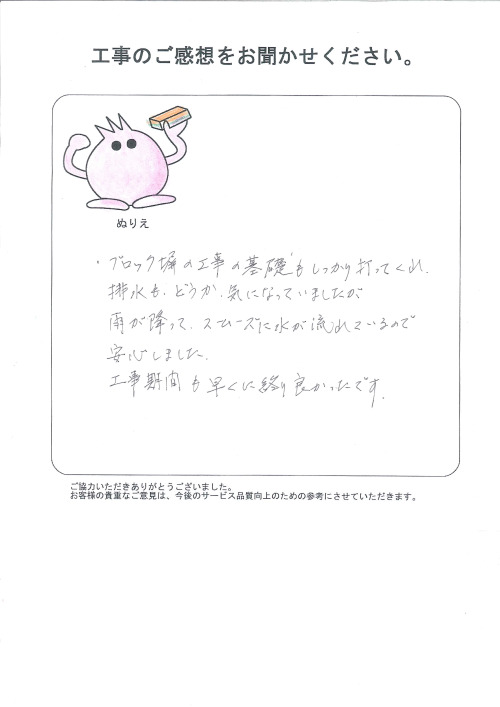 工事のご感想をお聞かせください。
ぬりえ
・ブロック塀の工事の基礎もしっかり打ってくれ、
排水も、どうか、気になっていましたが
雨が降って、スムーズに水が流れているので
安心しました。
工事期間も早くに終り良かったです。
ご協力いただきありがとうございました。
お客様の貴重なご意見は、今後のサービス品質向上のための参考にさせていただきます。